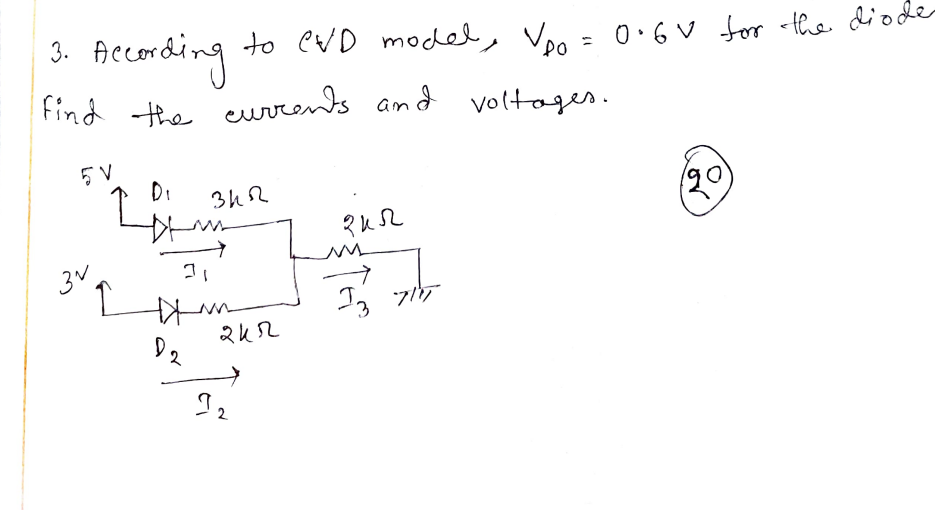 3. According to CVD model, V_D0 = 0.6 V for the diode
Find the currents and voltages.
20
5 V
D1
3kΩ
I1
2kΩ
I3
3V
D2
2kΩ
I2